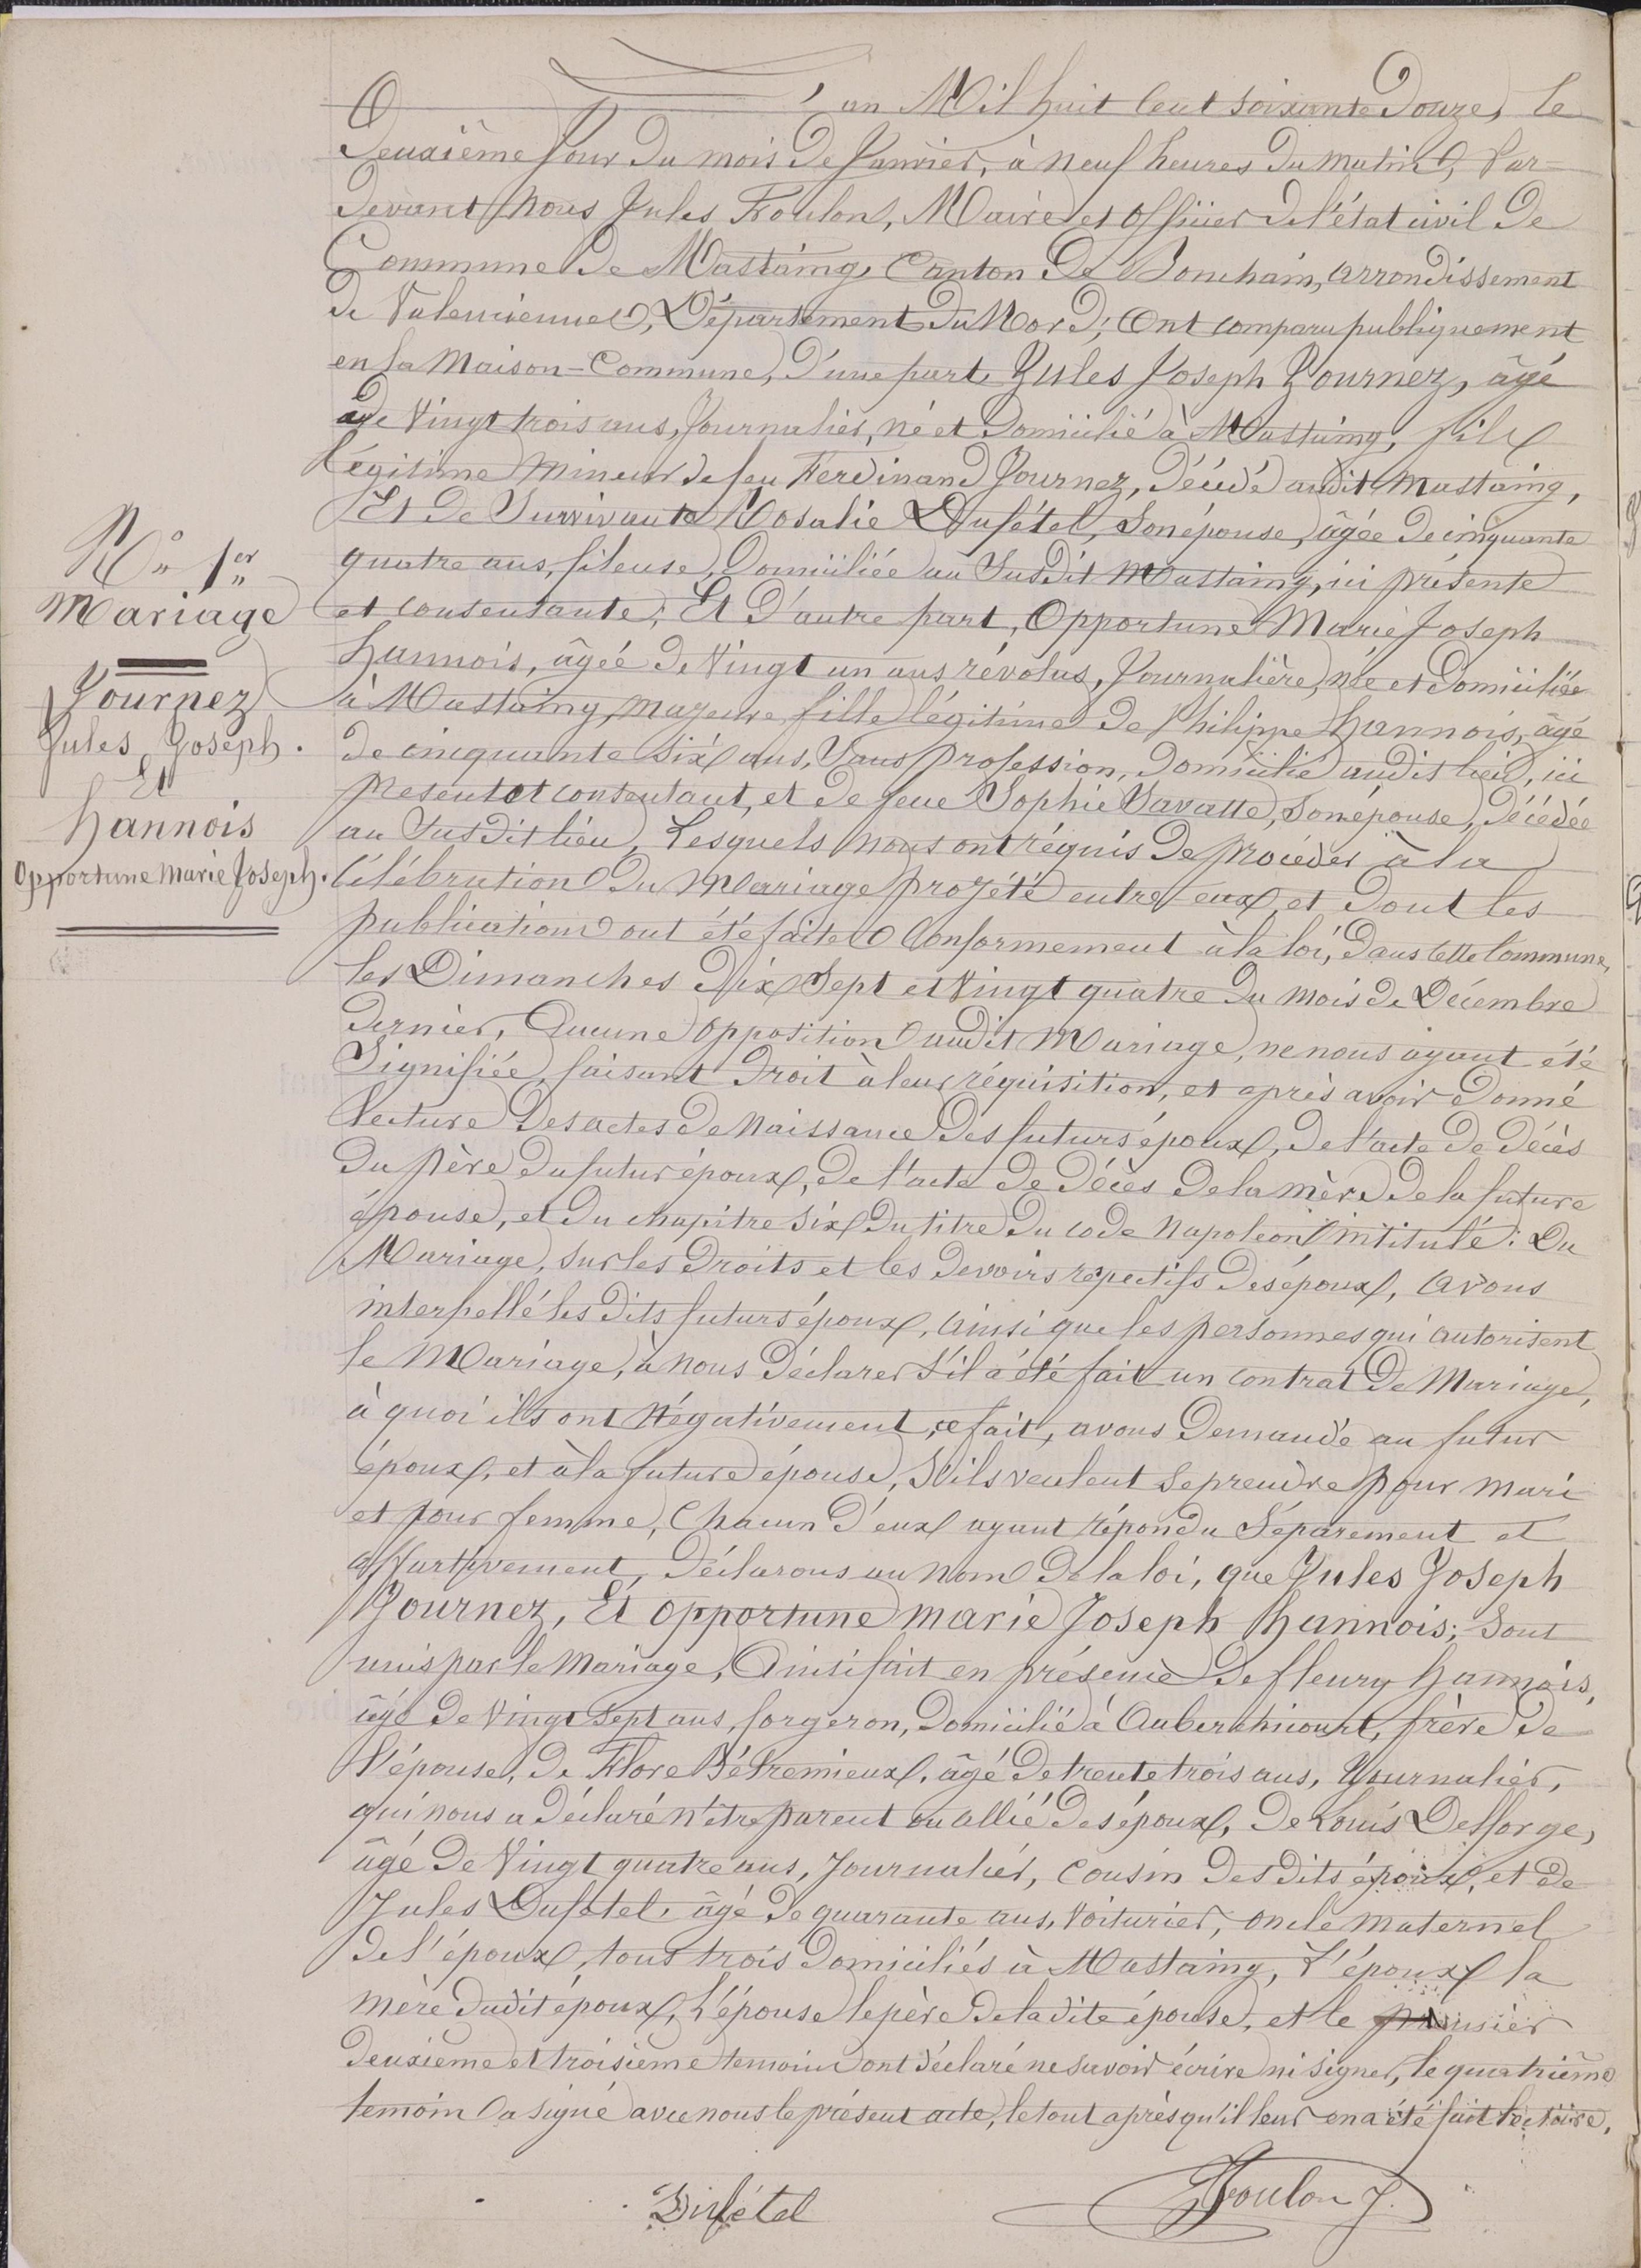 L'an Mil huit Cent soixante Douze, le
Deuxième Jour Du mois De Janvier, à Neuf heures Du matin, Par-
Devant Nous Jules Foulon, Maire et officier De l'état civil De
Commune De Mastaing, Canton De Bouchain, arrondissement
De Valenciennes, Département Du Nord; Ont comparu publiquement
en la Maison-Commune, D'une part Jules Joseph Journez, âgé
de Vingt trois ans, Journalier, né et Domicilié à Mastaing, fils
légitime Mineur de feu Ferdinand Journez, Décédé audit Mastaing,
Et De Survivante Rosalie Dufétel, Son épouse, âgée De cinquante
quatre ans, fileuse, Domiciliée au Susdit Mastaing, ici présente
et consentante; Et D'autre part, Opportune Marie Joseph
hannois, âgée De Vingt un ans révolus, Journalière, née et Domiciliée
à Mastaing, majeure fille légitime De Philippe hannois, âgé
De cinquante Six ans, Sans profession, Domicilié audit lieu, ici
présent et consentant, et De feue Sophie Savatte, Son épouse, Décédée
au Susdit lieu, Lesquels Nous ont réquis De procéder à la
Célébration Du Mariage projété entre eux, et Dont les
publications ont été faites Conformement à la loi, Dans Cette Commune,
les Dimanches Dix Sept et Vingt quatre Du mois De Décembre
Dernier, Aucune opposition audit Mariage, ne nous ayant été
Signifiée, faisant Droit à leur réquisition, et après avoir Donné
lecture Des actes De Naissance Des futurs époux, De l'acte De Décès
Du Père Du futur époux, De l'acte De Décès De la mère De la future
épouse, et Du chapitre Six Du titre Du code Napoléon intitulé: Du
Mariage, Sur les Droits et les Devoirs répectifs Des époux, avons
interpellé les Dits futurs époux, ainsi que les personnes qui autorisent
le Mariage, à nous Déclarer S'il a été fait un contrat De Mariage,
à quoi ils ont Négativement, ce fait, avons Demandé au futur
époux, et à la future épouse, S'ils veulent Se prendre Pour mari
et pour femme, Chacun D'eux ayant répondu Séparement et
, Déclarons au Nom De la loi, que Jules Joseph
Journez, Et Opportune Marie Joseph hannois; Sont
unis par le Mariage, Ainsi fait en présence De fleury hannois,
âgé De Vingt Sept ans, forgeron, Domicilié à Auberchicourt, frère De
l'épouse, De Flore Bétremieux, âgé De trente trois ans, Journalier,
qui nous a Déclaré N'être parent ou allié Des époux, De Louis Delforge,
âgé De Vingt quatre ans, Journalier, Cousin Des Dits époux, et De
Jules Dufetel, âgé De quarante ans, Voiturier, oncle maternel
De l'époux, tous trois Domiciliés à Mastaing, L'époux la
mère Dudit époux, L'épouse le père De la dite épouse, et le premier
Deuxième et troisième temoins ont Déclaré ne savoir écrire ni signer, le quatrième
temoin a signé avec nous le présent acte, le tout après qu'il leur en a été fait lecture.
Dufétel
Foulon J.
N° 1er
Mariage
Journez
Jules Joseph.
Et
hannois
Opportune Marie Joseph.